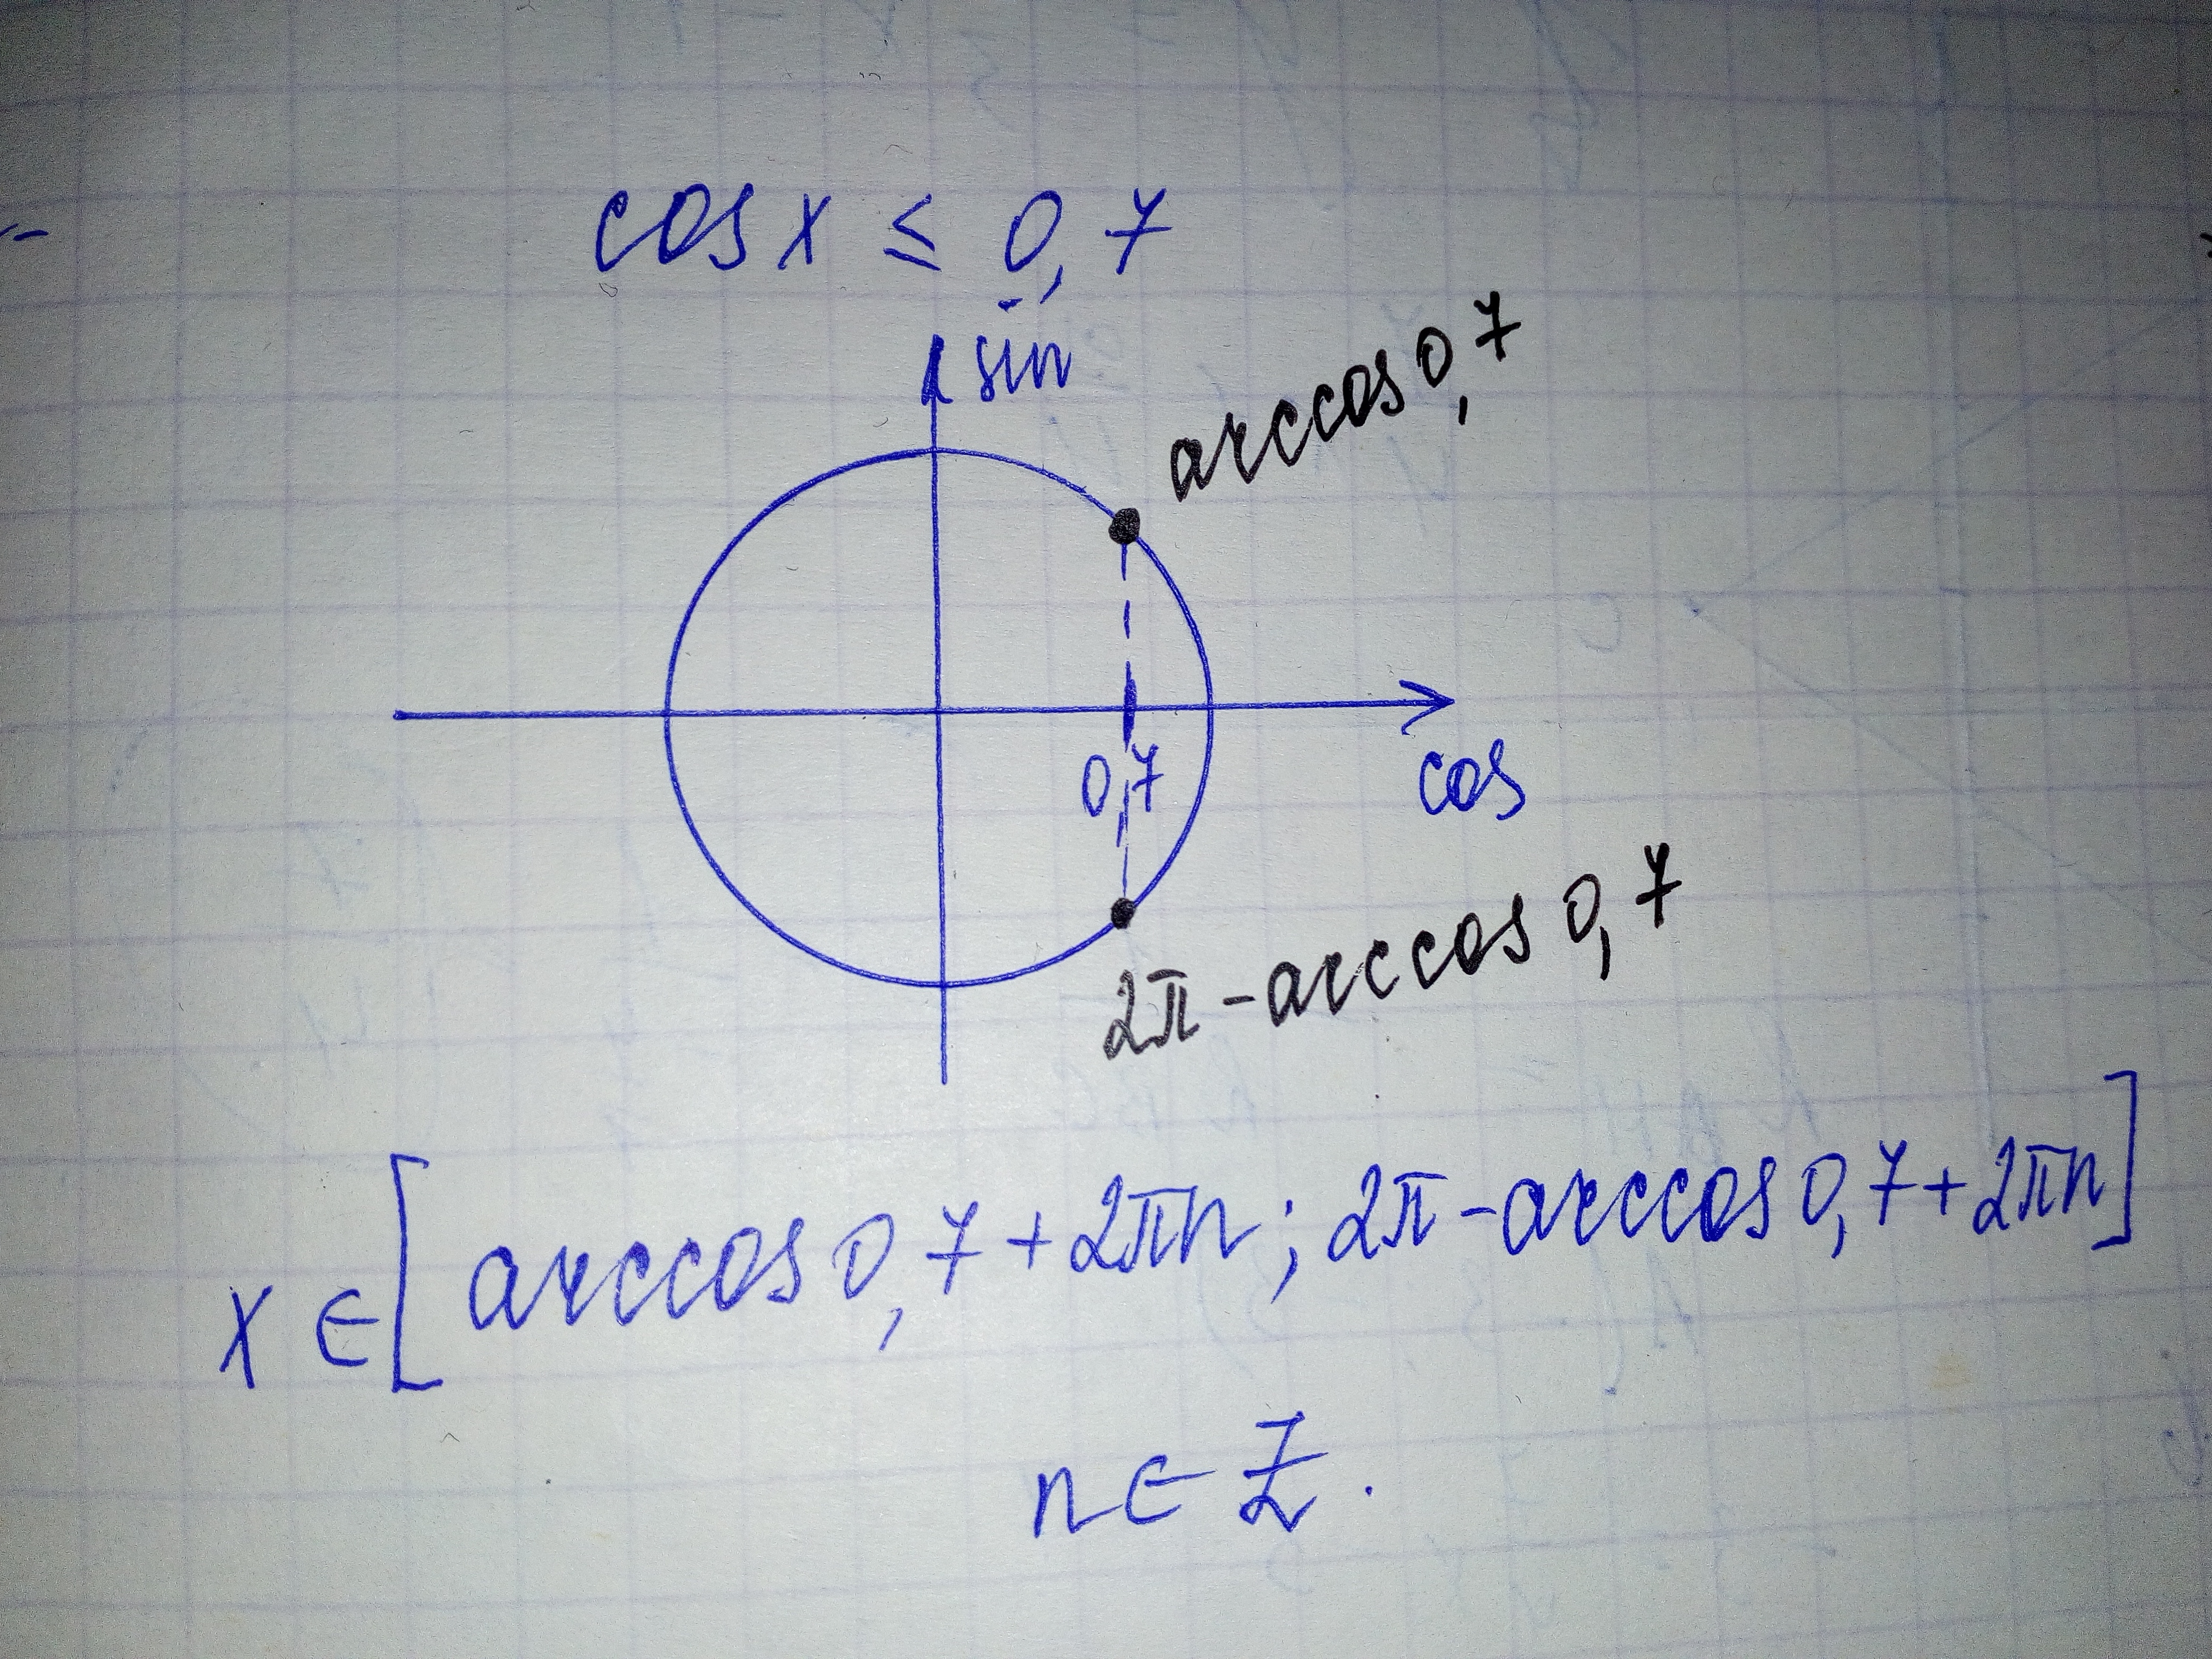 cos x ≤ 0,7
sin
arccos 0,7
0,7
cos
2π - arccos 0,7
x ∈ [arccos 0,7 + 2πn; 2π - arccos 0,7 + 2πn]
n ∈ Z.